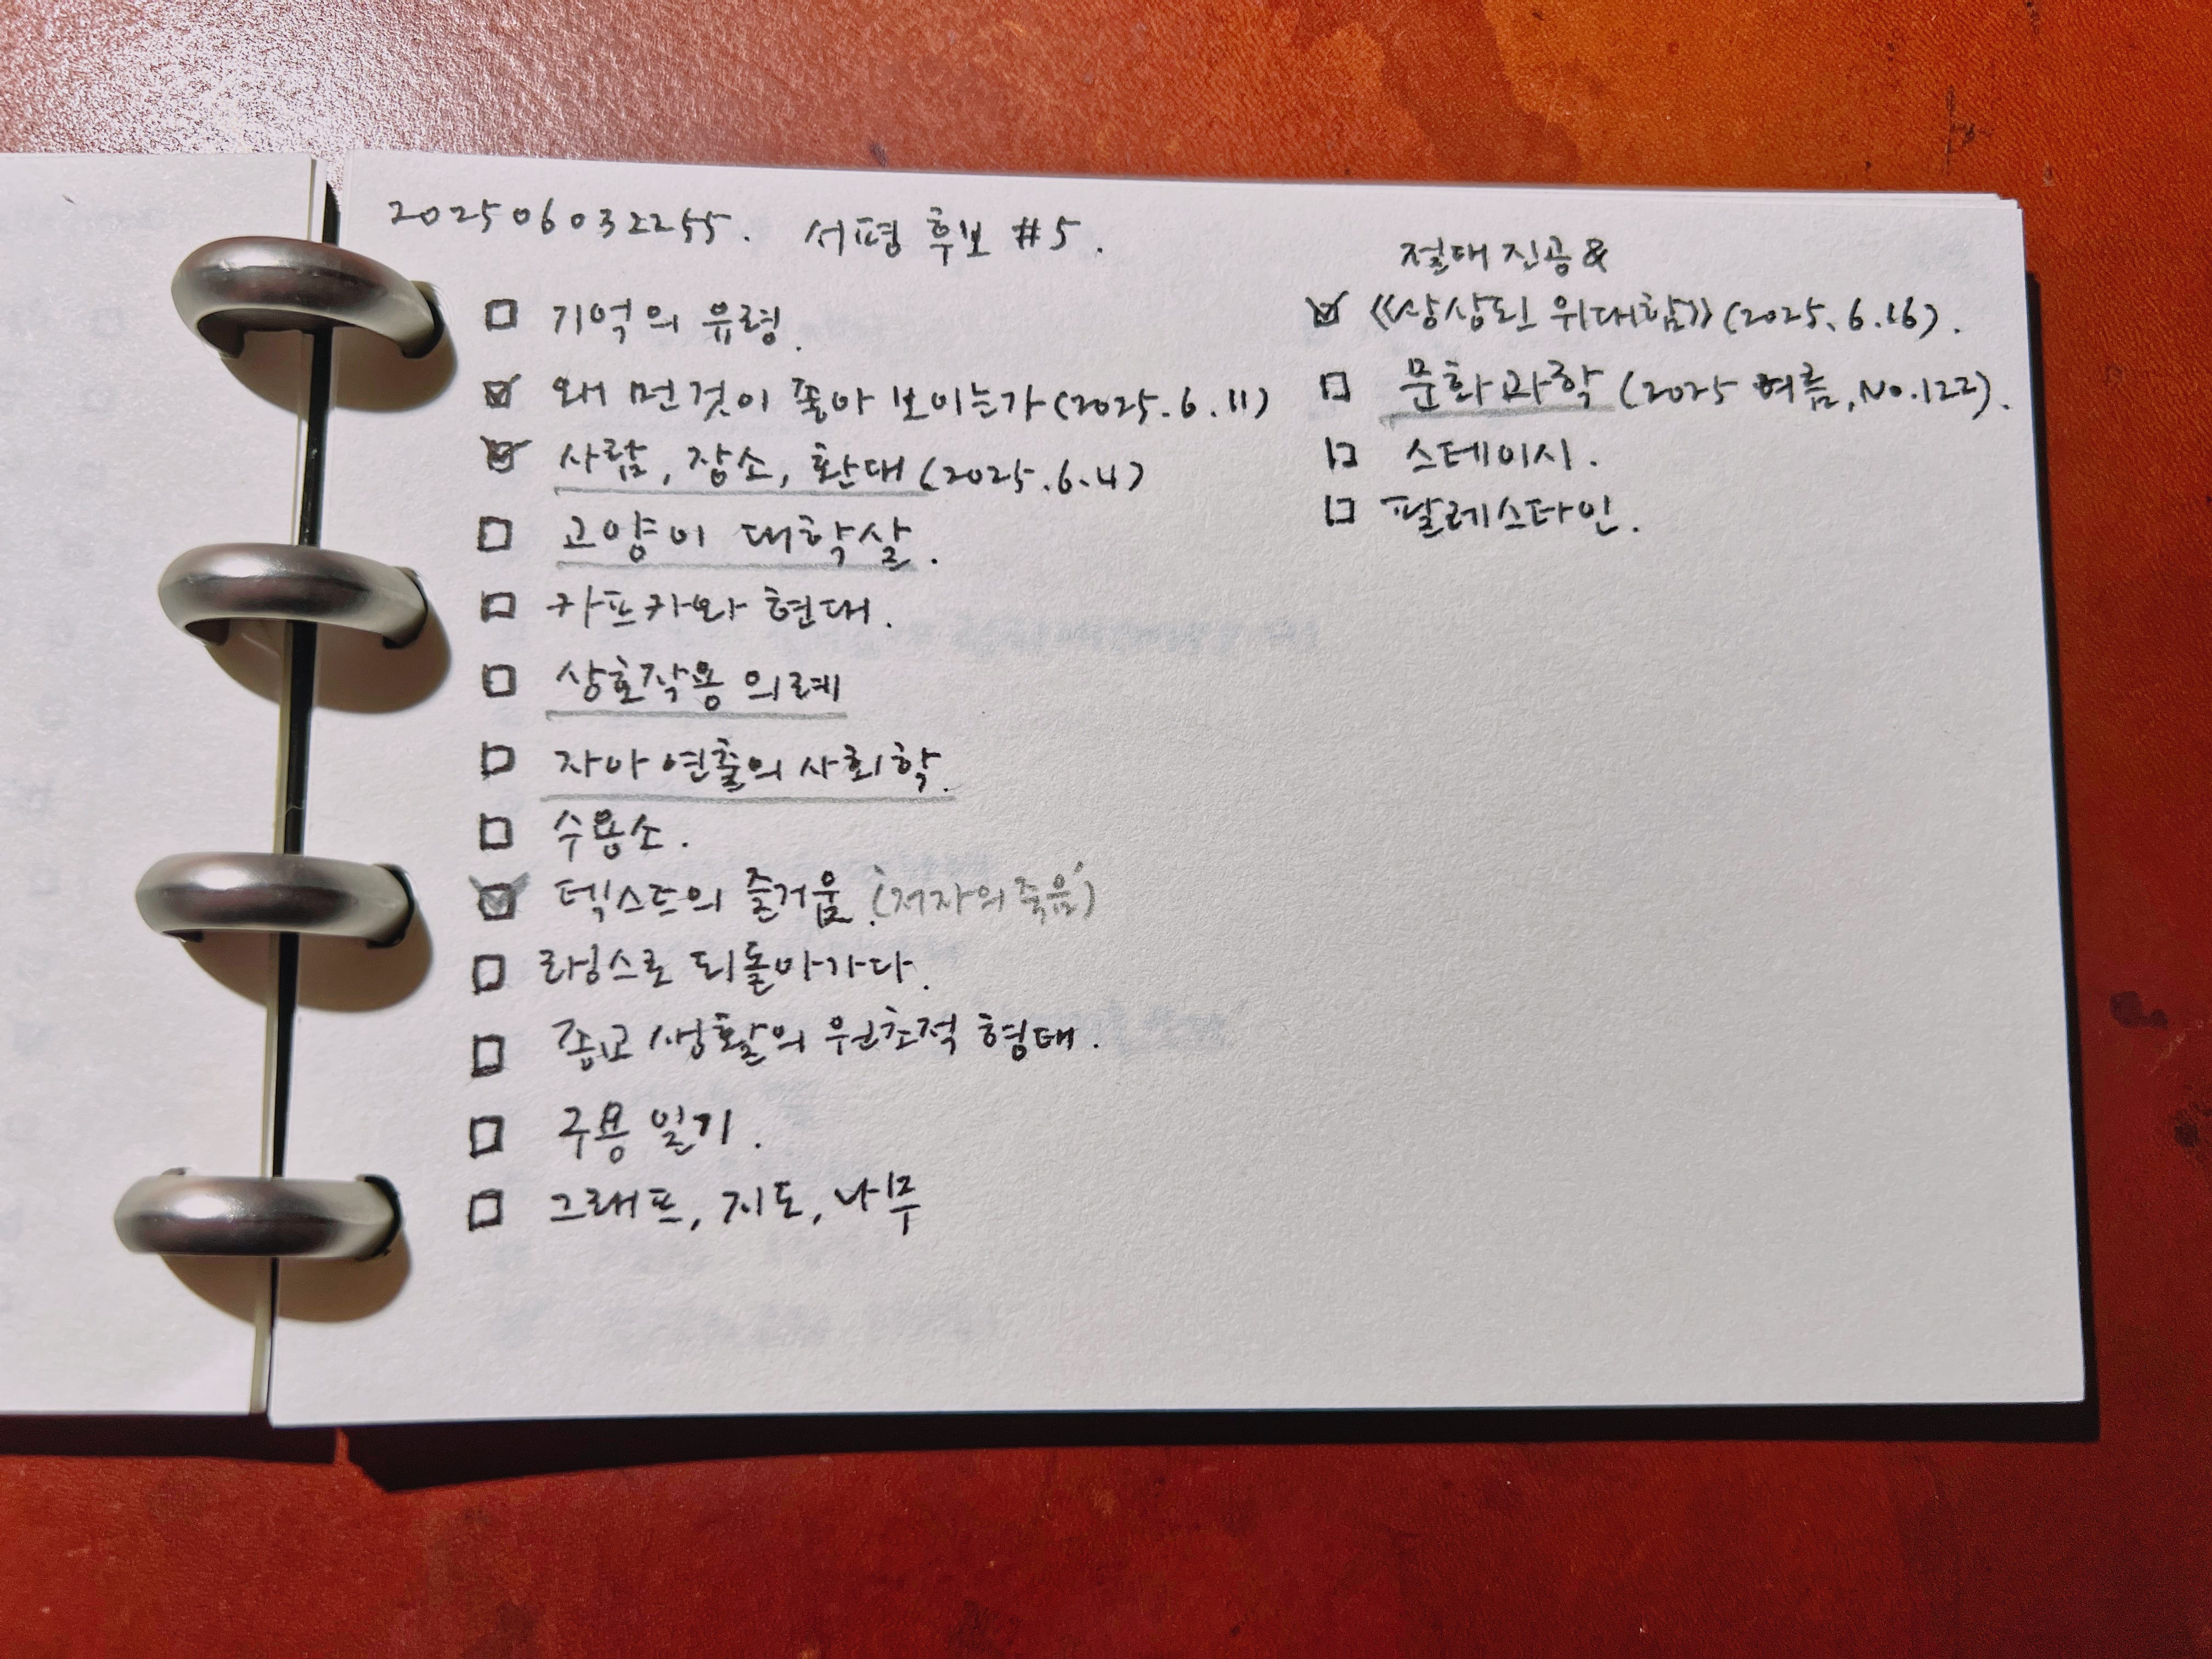 202506032255. 서평 후보 #5.
기억의 유령.
왜 먼 것이 좋아 보이는가 (2025.6.11)
사람, 장소, 환대 (2025.6.4)
고양이 대학살.
카프카와 현대.
상호작용 의례
자아 연출의 사회학.
수용소.
텍스트의 즐거움. ('저자의 죽음')
랭스로 되돌아가다.
종교 생활의 원초적 형태.
구용 일기.
그래프, 지도, 나무
절대 진공 &
《상상된 위대함》 (2025.6.16).
문화과학 (2025 여름, No.122).
스테이시.
팔레스타인.